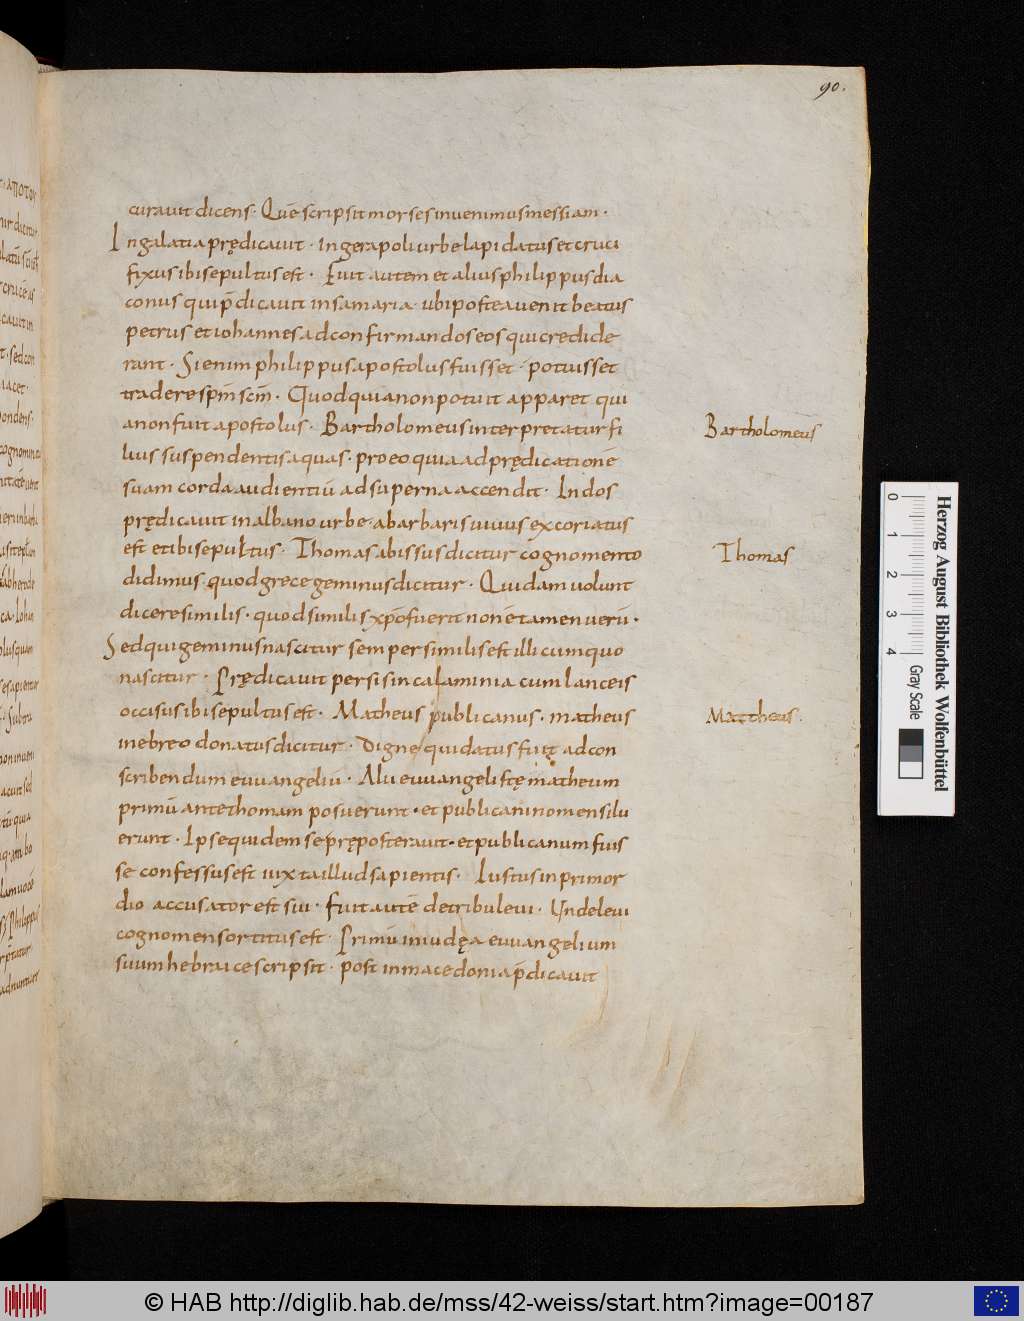 90.
curavit dicens · Quē scripsit morses invenimus messiam ·
In galatia prędicavit · in gerapoli urbe lapidatus et cruci
fixus ibi sepultus est · Fuit autem et alius philippus dia
conus qui p̄dicavit in samaria · ubi postea venit beatus
petrus et iohannes ad confirmandos eos qui credide
rant · Si enim philippus apostolus fuisset · potuisset
tradere spm̄ scm̄ · Quod quia non potuit apparet qui
a non fuit apostolus · Bartholomeus interpretatur fi
lius suspendentis aquas · pro eo quia ad prędicationē
suam corda audientiū ad superna accendit · Indos
prędicavit in albano urbe · a barbaris vivus excoriatus
est et ibi sepultus · Thomas abissus dicitur cognomento
didimus quod grece geminus dicitur · Quidam volunt
dicere similis · quod similis xp̄o fuerit non ē tamen verū ·
Sed qui geminus nascitur semper similis est illi cum quo
nascitur · Prędicavit persis in calaminia cum lanceis
occisus ibi sepultus est · Matheus publicanus · matheus
in ebreo donatus dicitur · Digne qui datus fuit ad con
scribendum evvangeliū · Alii evvangelistę matheum
primū ante thomam posuerunt · et publicani nomen silu
erunt · Ipse quidem se pręposteravit · et publicanum fuis
se confessus est iuxta illud sapientis · Iustus in primor
dio accusator est sui · Fuit autē de tribu levi · Unde levi
cognomen sortitus est · Primū in iudęa evvangelium
suum hebraice scripsit · post in macedonia p̄dicavit
Bartholomeus
Thomas
Mattheus ·
0 1 2 3 4
Gray Scale
Herzog August Bibliothek Wolfenbüttel
© HAB http://diglib.hab.de/mss/42-weiss/start.htm?image=00187